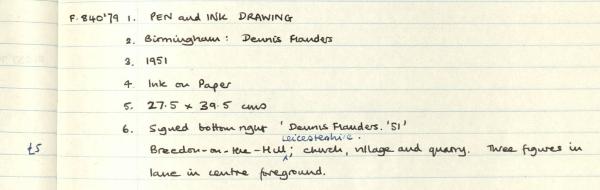 F. 840'79 1. PEN and INK DRAWING
2. Birmingham: Dennis Flanders
3. 1951
4. Ink on Paper
5. 27.5 x 39.5 cms
6. Signed bottom right 'Dennis Flanders. '51'
Leicestershire.
£5 Breedon-on-the-Hill; church, village and quarry. Three figures in
lane in centre foreground.